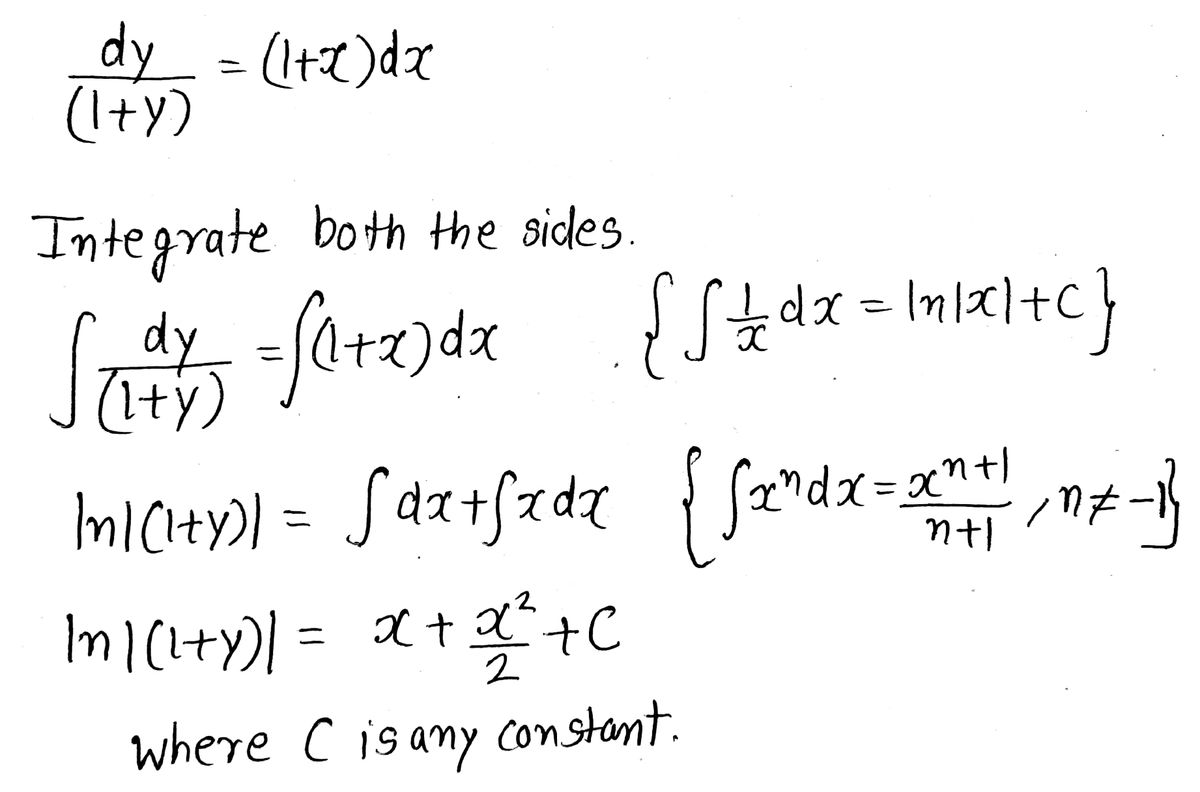 dy/(1+y) = (1+x)dx
Integrate both the sides.
∫ dy/(1+y) = ∫(1+x)dx {∫ 1/x dx = ln|x|+C}
ln|(1+y)| = ∫dx+∫xdx {∫xⁿdx = xⁿ⁺¹/n+1 , n≠-1}
ln|(1+y)| = x + x²/2 + C
where C is any constant.